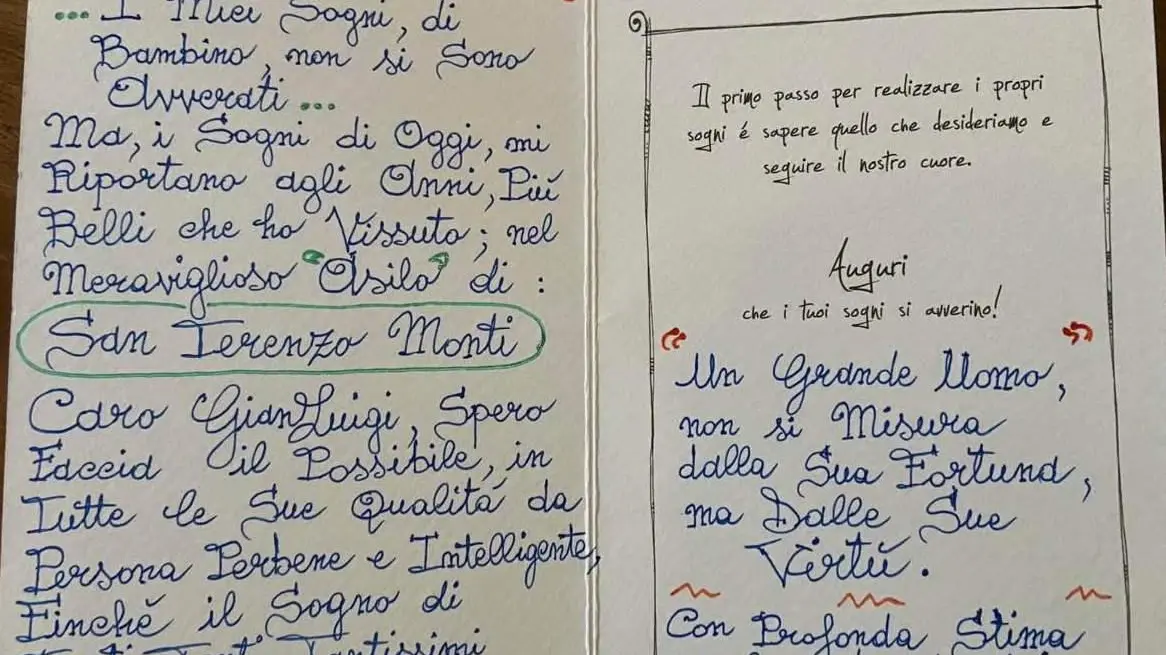 ... I Miei Sogni, di
Bambino, non si Sono
Avverati ...
Ma, i Sogni di Oggi, mi
Riportano agli Anni, Più
Belli che ho Vissuto; nel
Meraviglioso "Asilo" di :
San Terenzo Monti
Caro GianLuigi, Spero
Faccia il Possibile, in
Tutte le Sue Qualità da
Persona Perbene e Intelligente,
Finchè il Sogno di
Tanti, Tantissimi
Il primo passo per realizzare i propri
sogni é sapere quello che desideriamo e
seguire il nostro cuore.
Auguri
che i tuoi sogni si avverino!
"Un Grande Uomo,
non si Misura
dalla Sua Fortuna,
ma Dalle Sue
Virtù."
Con Profonda Stima